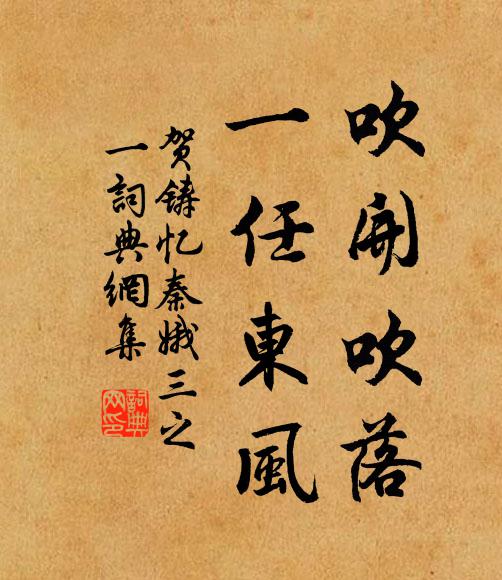 吹開吹落
一任東風
贺鑄忆秦娥三之
一詞典網集
詞典
网印